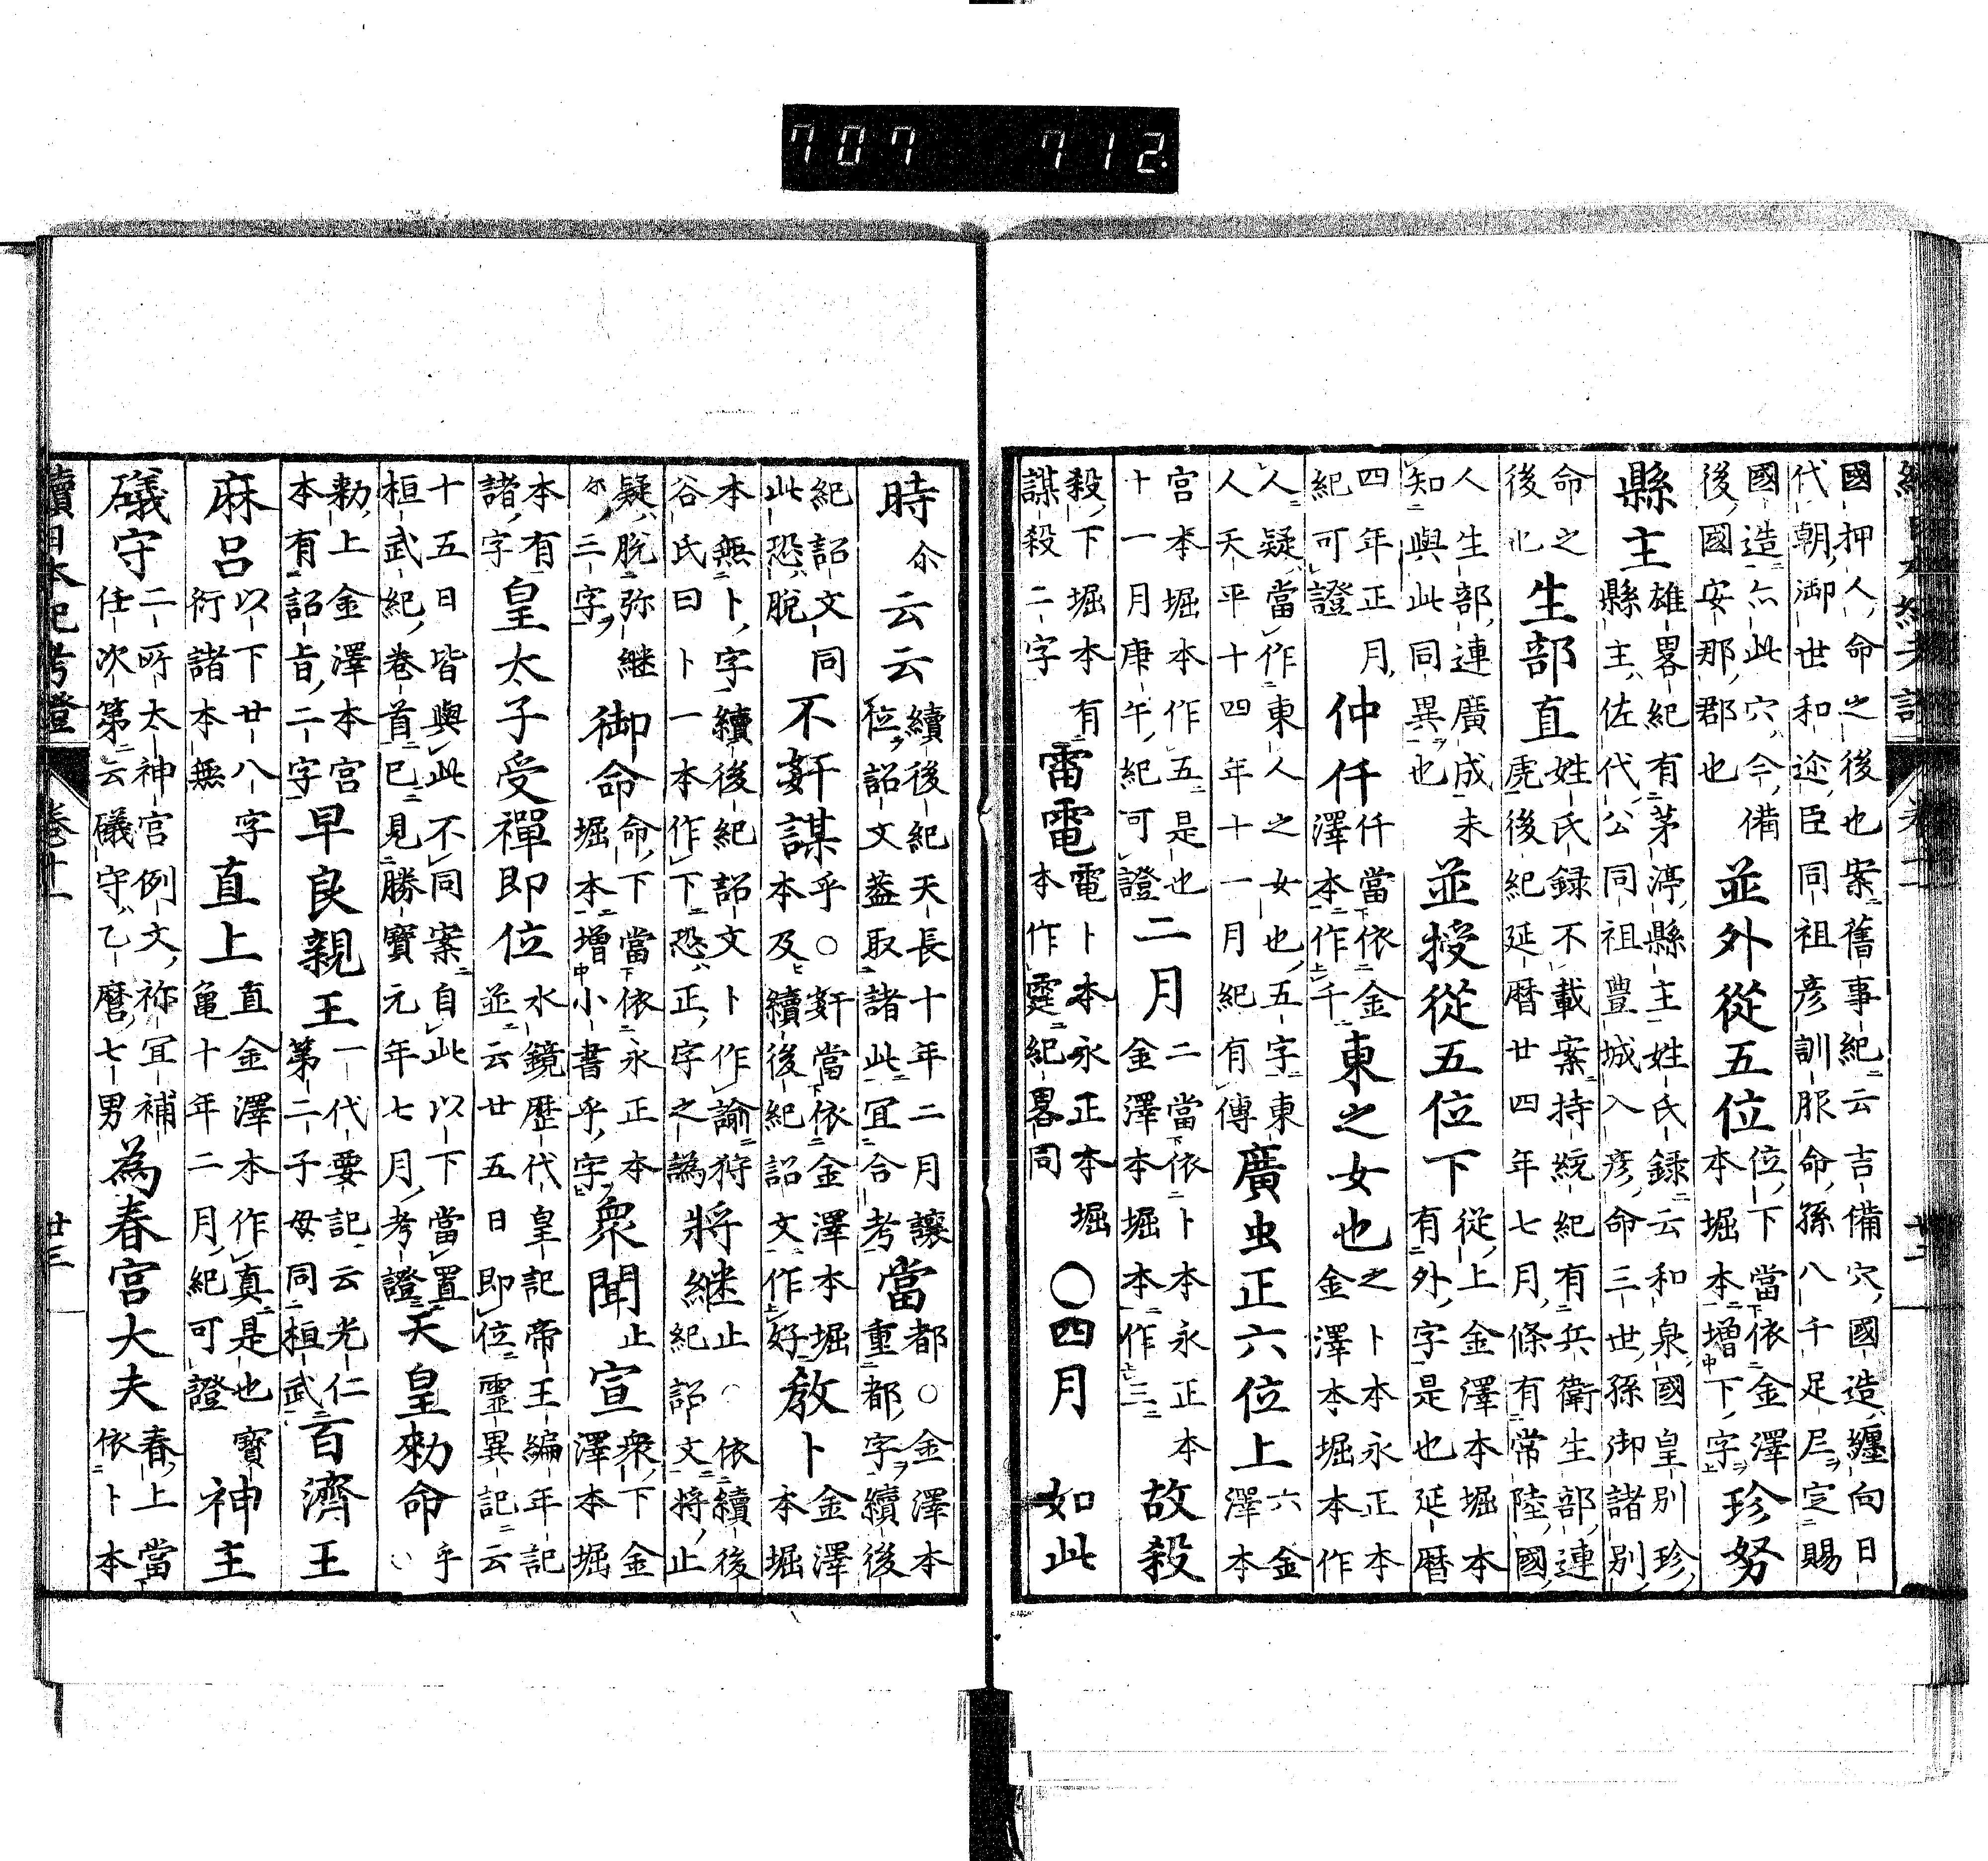 707 712
國押人命之後也案舊事紀云吉備穴國造纏向日
代朝御世和迩臣同祖彦訓服命孫八千足尼定賜
國造六此穴今備
後國安那郡也
並外從五位
位下當依金澤
本堀本増下字
珍努
縣主
雄畧紀有茅渟縣主姓氏録云和泉國皇別珍
縣主佐代公同祖豊城入彦命三世孫御諸別
命之
後也
生部直
姓氏録不載案持統紀有兵衛生部連
虎後紀延暦廿四年七月條有常陸國
人生部連廣成未
知與此同異也
並授從五位下
從上金澤本堀本
有外字是也延暦
四年正月
紀可證
仲仟
仟當依金
澤本作千
東之女也
之卜本永正本
金澤本堀本作
人疑當作東人之女也五字東
人天平十四年十一月紀有傳
廣虫正六位上
六金
澤本
宮本堀本作五是也
十一月庚午紀可證
二月
二當依卜本永正本
金澤本堀本作三
故殺
殺下堀本有
謀殺二字
雷電
電卜本永正本堀
本作霆紀畧同
○四月
如此
時
尒
云云
續後紀天長十年二月讓
位詔文葢取諸此冝合考
當
都○金澤本
重都字續後
紀詔文同
此恐脱
不奸謀
乎○奸當依金澤本堀
本及續後紀詔文作好
教卜
金澤
本堀
本無卜字續後紀詔文卜作諭狩
谷氏曰卜一本作下恐正字之譌
將継
止○依續後
紀詔文將止
疑脱弥継
尓三字
御命
命下當依永正本
堀本増小書乎字
衆聞
止
宣
衆下金
澤本堀
本有
諸字
皇太子受禪即位
水鏡歴代皇記帝王編年記
並云廿五日即位靈異記云
十五日皆與此不同案自此以下當置
桓武紀卷首已見勝寶元年七月考證
天皇勅命
乎
勅上金澤本宮
本有詔旨二字
早良親王
一代要記云光仁
第二子母同桓武
百濟王
麻呂
以下廿八字
衍諸本無
直上
直金澤本作真是也寶
亀十年二月紀可證
神主
礒守
二所太神宮例文祢冝補
任次第云礒守乙麿七男
為春宮大夫
春上當
依卜本
續日本紀考證
卷十一
廿三